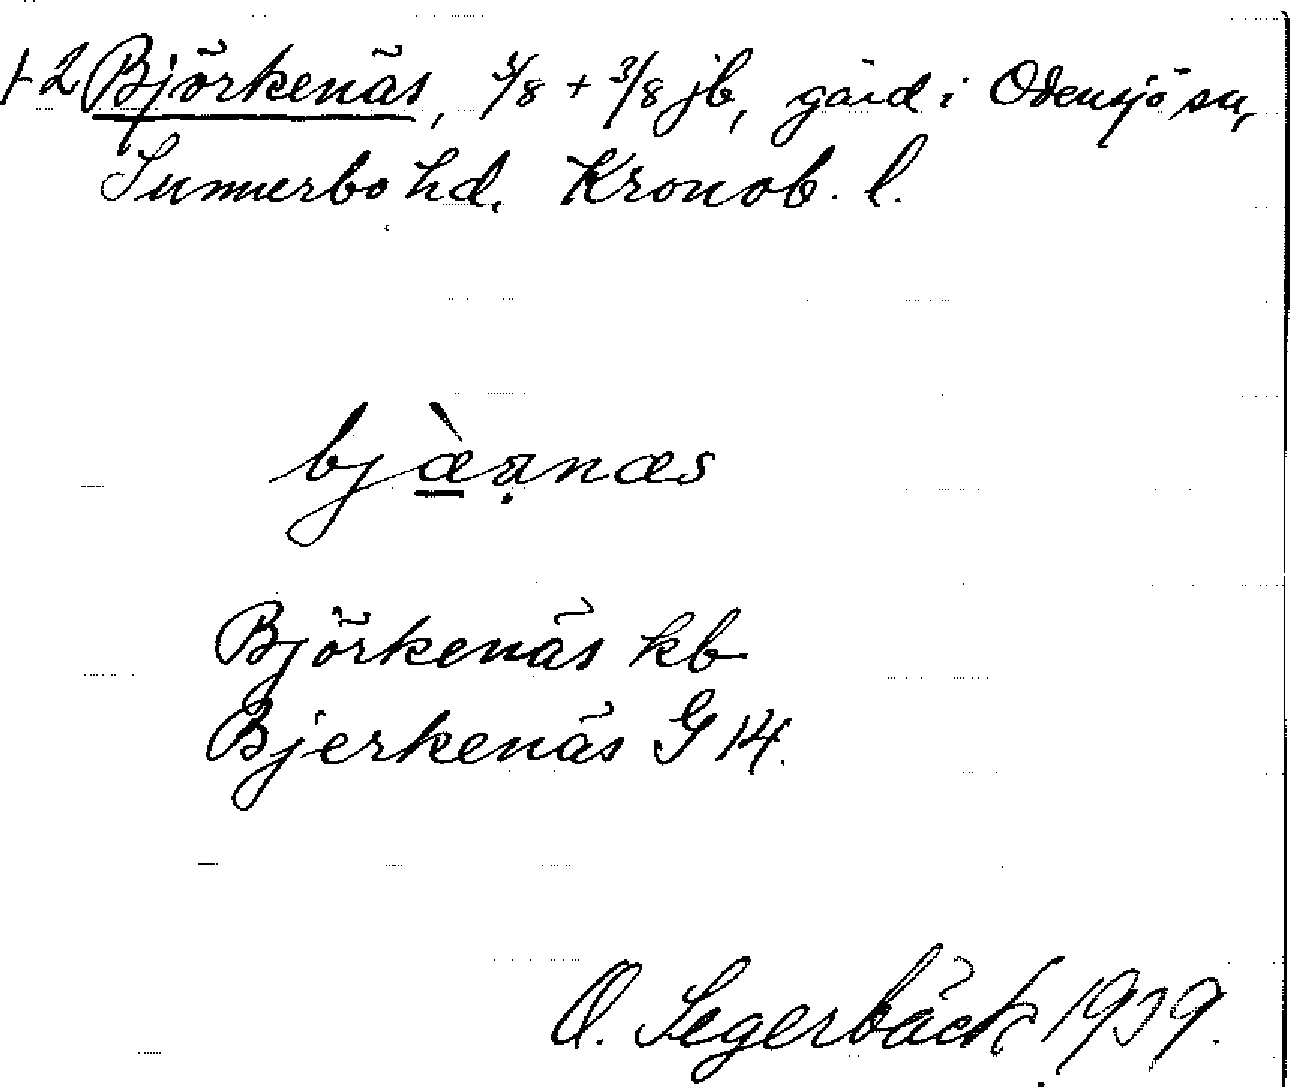 1+2 Björkenäs, 3/8 + 3/8 jb, gård i Odensjö sn,
Sunnerbo hd. Kronob. l.
Björkenäs kb
Bjerkenäs G 14.
O. Segerbäck 1939.